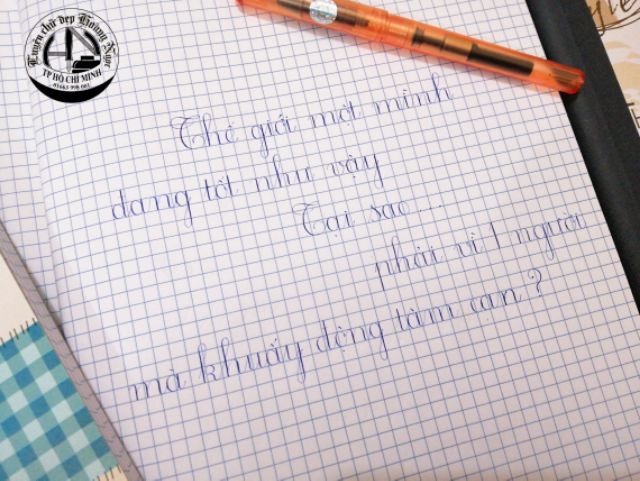 Luyện chữ đẹp Hoàng Ngọc
TP HỒ CHÍ MINH
Thế giới một mình
đang tốt như vậy
Tại sao...
phải vì 1 người
mà khuấy động tâm can?